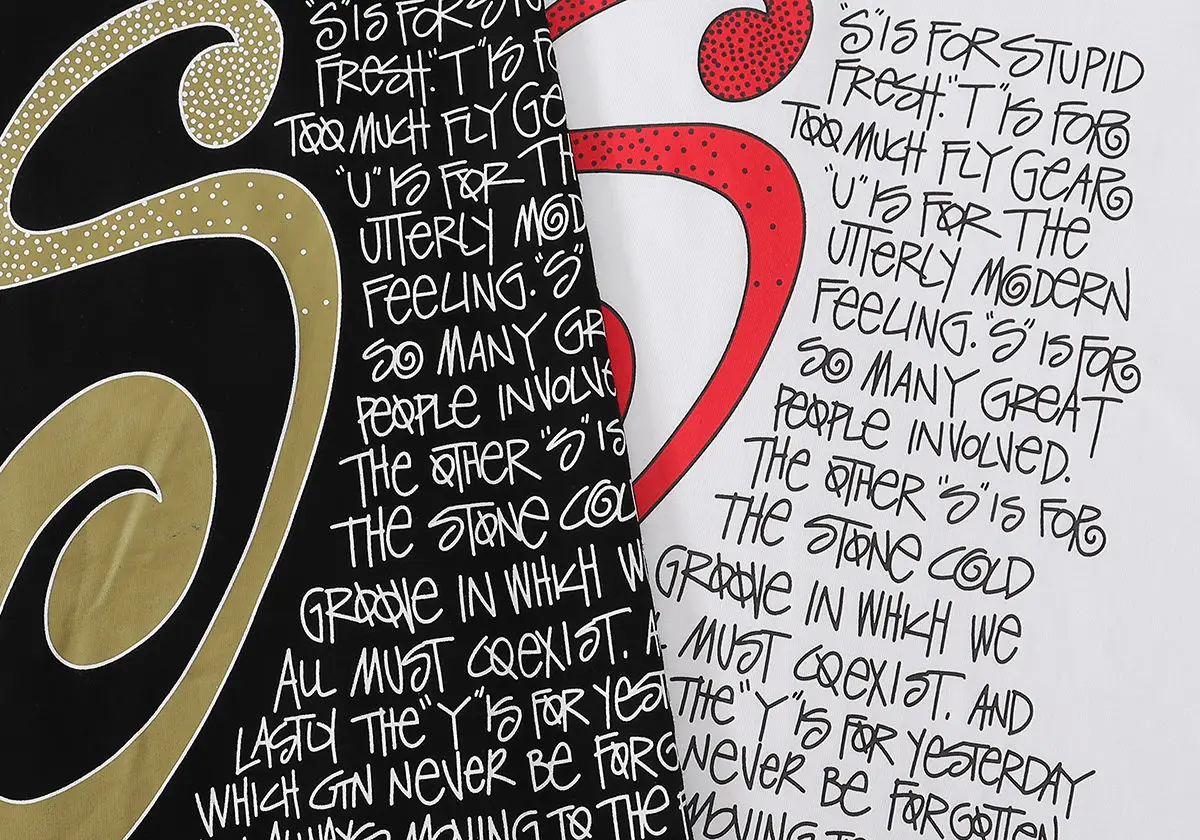 "S" IS FOR
FRESH. "T" IS
TOO MUCH FLY
"U" IS FOR
UTTERLY MOD
FEELING. "S"
SO MANY GR
PEOPLE INVOLVE
THE OTHER "S" IS
THE STONE COL
GROOVE IN WHICH W
ALL MUST COEXIST.
LASTLY THE "Y" IS FOR YEST
WHICH CAN NEVER BE FORG
ALWAYS MOVING TO THE
"S" IS FOR STUPID
FRESH. "T" IS FOR
TOO MUCH FLY GEAR
"U" IS FOR THE
UTTERLY MODERN
FEELING. "S" IS FOR
SO MANY GREAT
PEOPLE INVOLVED.
THE OTHER "S" IS FOR
THE STONE COLD
GROOVE IN WHICH WE
MUST COEXIST. AND
THE "Y" IS FOR YESTERDAY
NEVER BE FORGOTTEN
MOVING TO